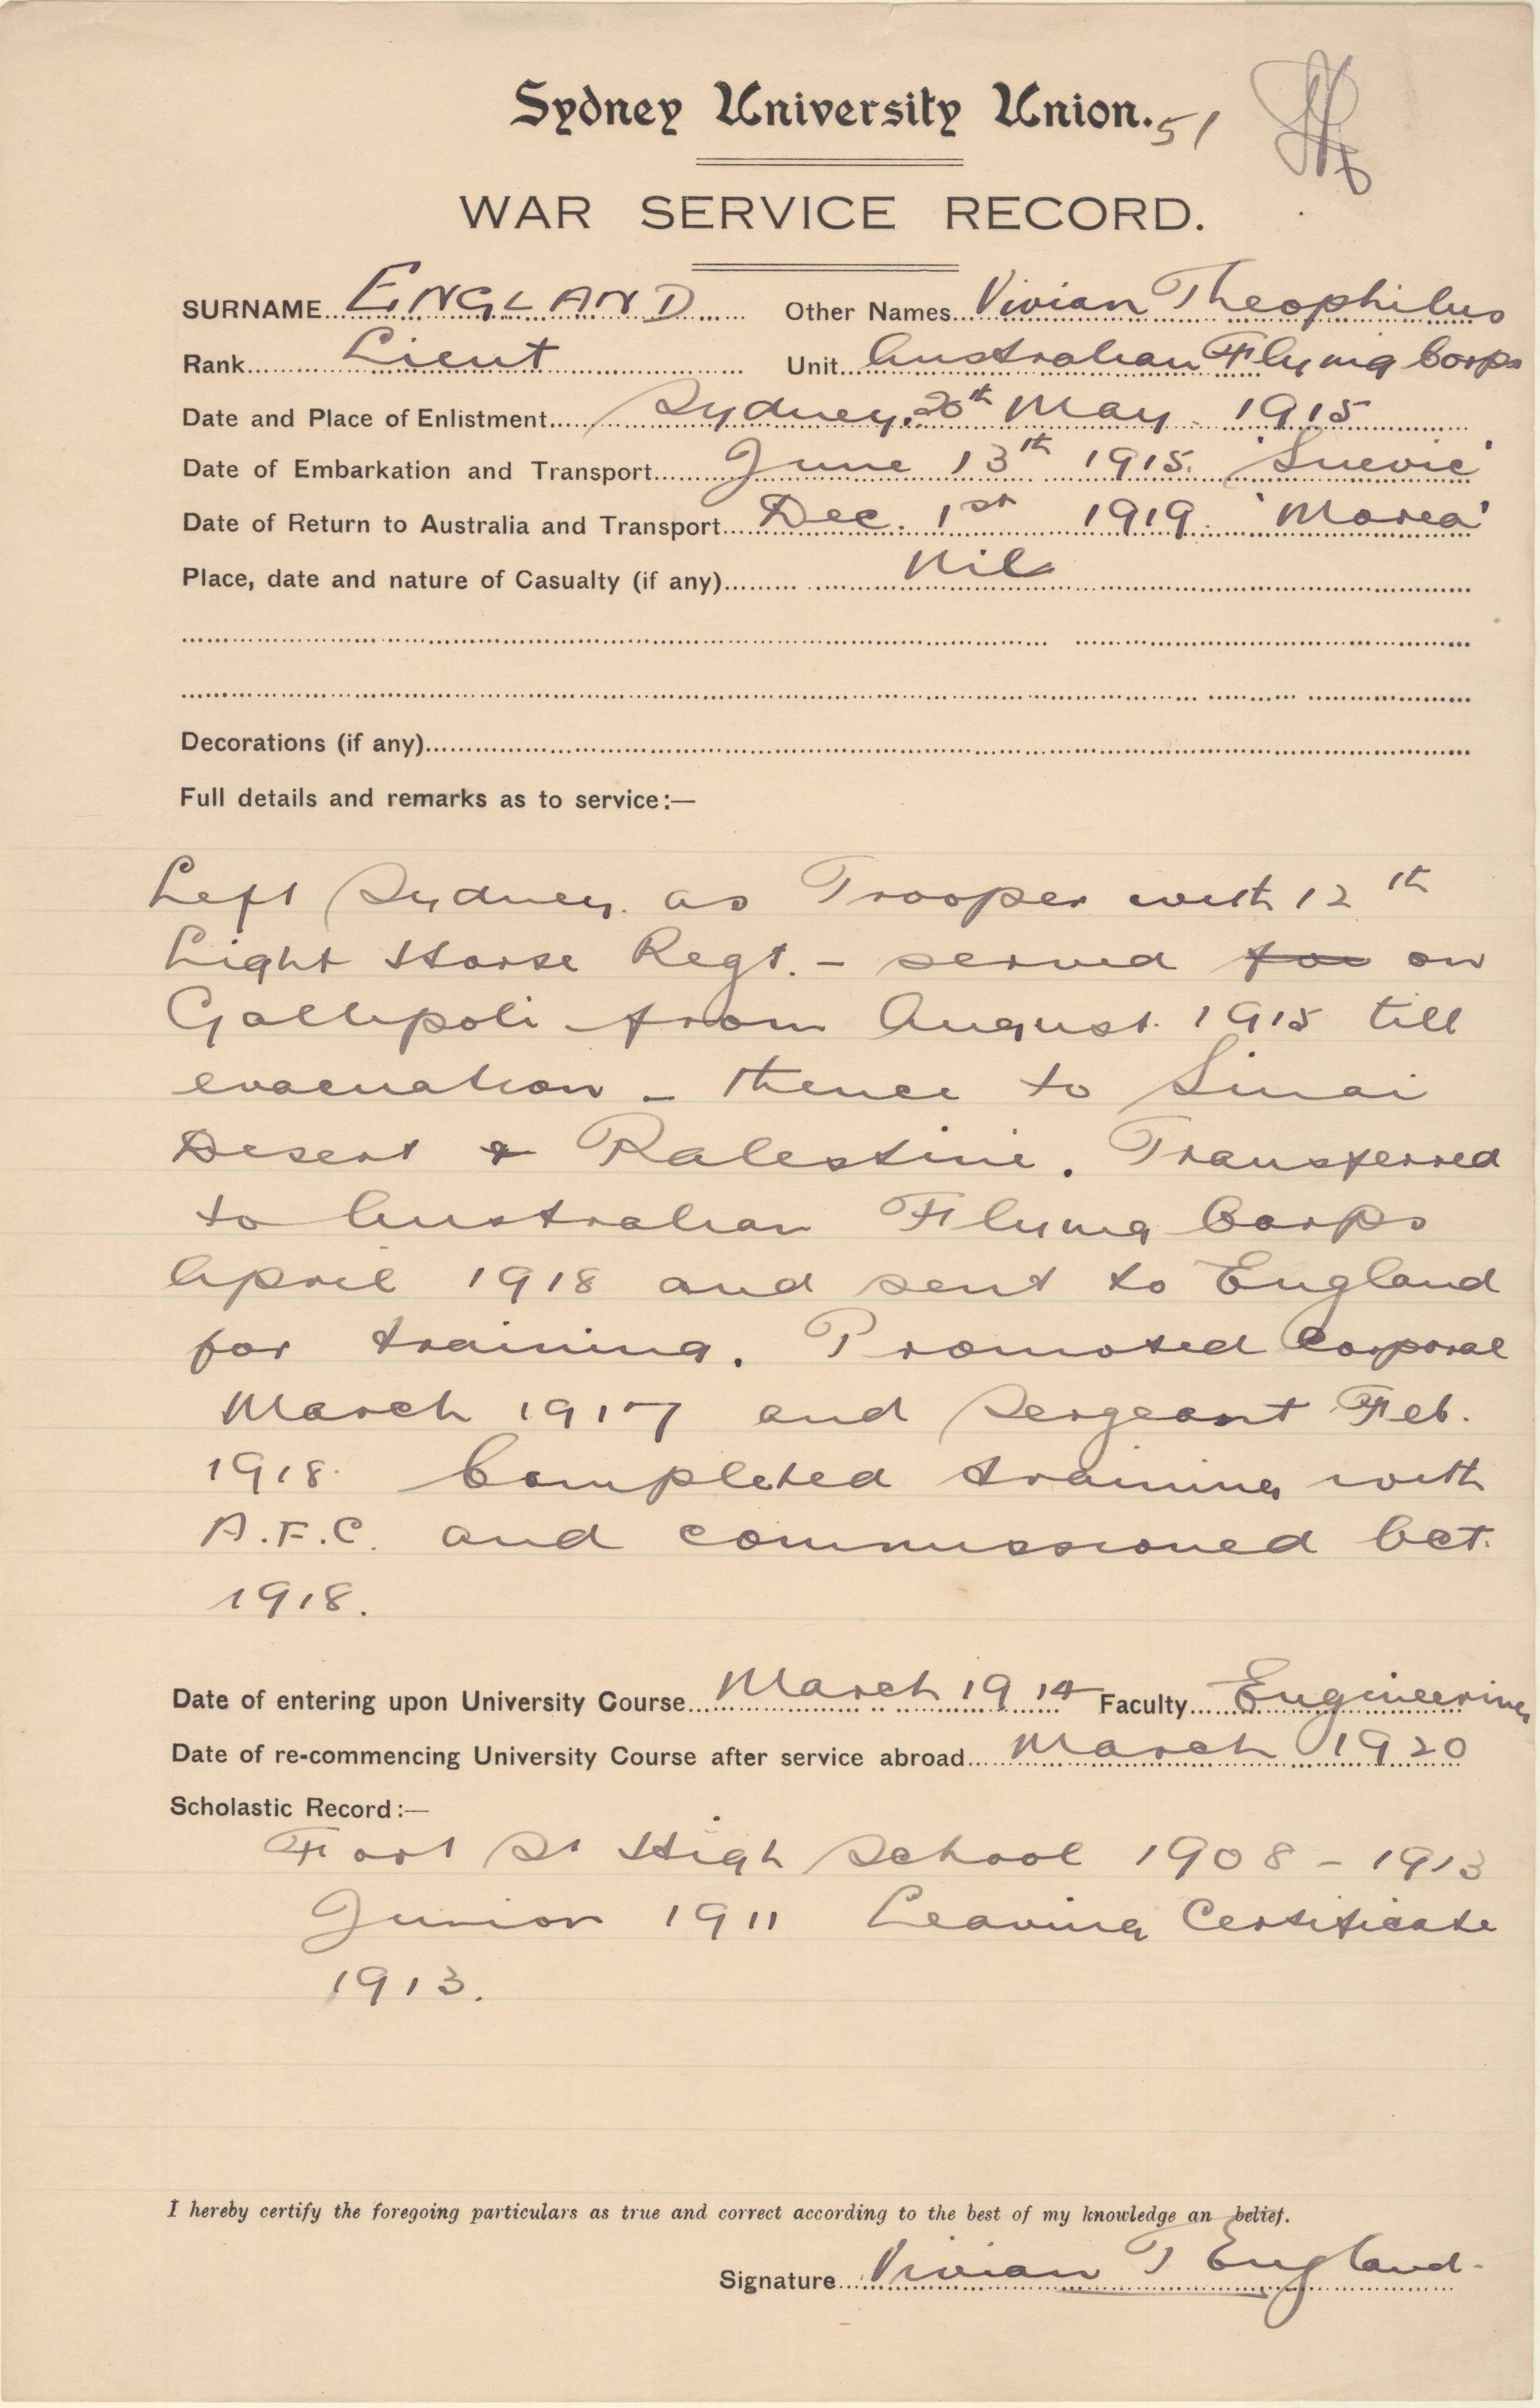 Sydney University Union. 51
WAR SERVICE RECORD.
SURNAME ENGLAND Other Names Vivian Theophilus
Rank Lieut Unit Australian Flying Corps
Date and Place of Enlistment Sydney, 20th May. 1915
Date of Embarkation and Transport June 13th 1915. 'Suevic'
Date of Return to Australia and Transport Dec. 1st 1919. 'Morea'
Place, date and nature of Casualty (if any) Nil
Decorations (if any)
Full details and remarks as to service:—
Left Sydney. as Trooper with 12th
Light Horse Regt. - served for on
Gallipoli from August. 1915 till
evacuation - thence to Sinai
Desert & Palestine. Transferred
to Australian Flying Corps
April 1918 and sent to England
for training. Promoted Corporal
March 1917 and Sergeant Feb.
1918. Completed training with
A.F.C. and commissioned Oct.
1918.
Date of entering upon University Course March 1914 Faculty Engineering
Date of re-commencing University Course after service abroad March 1920
Scholastic Record:—
Fort St High School 1908 - 1913
Junior 1911 Leaving Certificate
1913.
I hereby certify the foregoing particulars as true and correct according to the best of my knowledge an belief.
Signature Vivian T England.